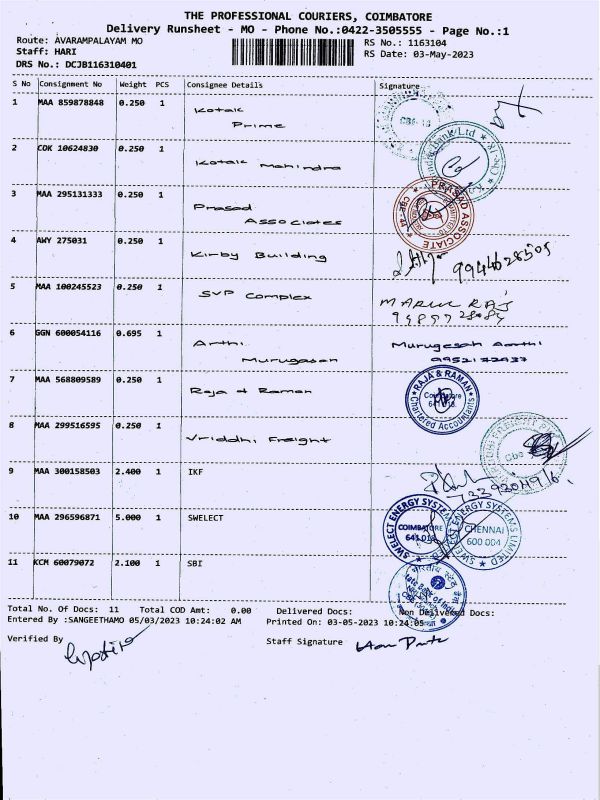 THE PROFESSIONAL COURIERS, COIMBATORE
Delivery Runsheet - MO - Phone No.:0422-3505555 - Page No.:1
Route: AVARAMPALAYAM MO
RS No.: 1163104
Staff: HARI
RS Date: 03-May-2023
DRS No.: DCJB116310401
S No Consignment No Weight PCS Consignee Details Signature
1 MAA 859878848 0.250 1 Kotak
Prime
2 COK 10624830 0.250 1 Kotak Mahindra
3 MAA 295131333 0.250 1 Prasad
Associates
PRASAD ASSOCIATE
4 AWY 275031 0.250 1 Kirby Building
9944628505
5 MAA 100245523 0.250 1 SVP Complex
MARUL RAJ
6 GGN 600054116 0.695 1 Arthi
Murugasan
Murugesah Aarthi
9952172937
7 MAA 568809589 0.250 1 Raja & Raman
RAJA & RAMAN
Chartered Accountants
8 MAA 299516595 0.250 1 Vriddhi Freight
9 MAA 300158503 2.400 1 IKF
10 MAA 296596871 5.000 1 SWELECT
SWELECT ENERGY SYSTEMS
COIMBATORE
SWELECT ENERGY SYSTEMS LIMITED
CHENNAI
600 004
11 KCM 60079072 2.100 1 SBI
भारतीय स्टेट बैंक
State Bank of India
Total No. Of Docs: 11 Total COD Amt: 0.00 Delivered Docs: Non Delivered Docs:
Entered By :SANGEETHAMO 05/03/2023 10:24:02 AM Printed On: 03-05-2023 10:24:05
Verified By
Staff Signature